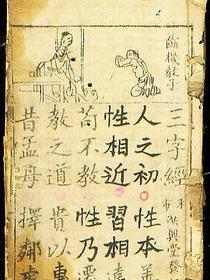 斷機教子
三字經
人之初性本善
性相近習相遠
苟不教性乃遷
教之道貴以專
昔孟母擇鄰